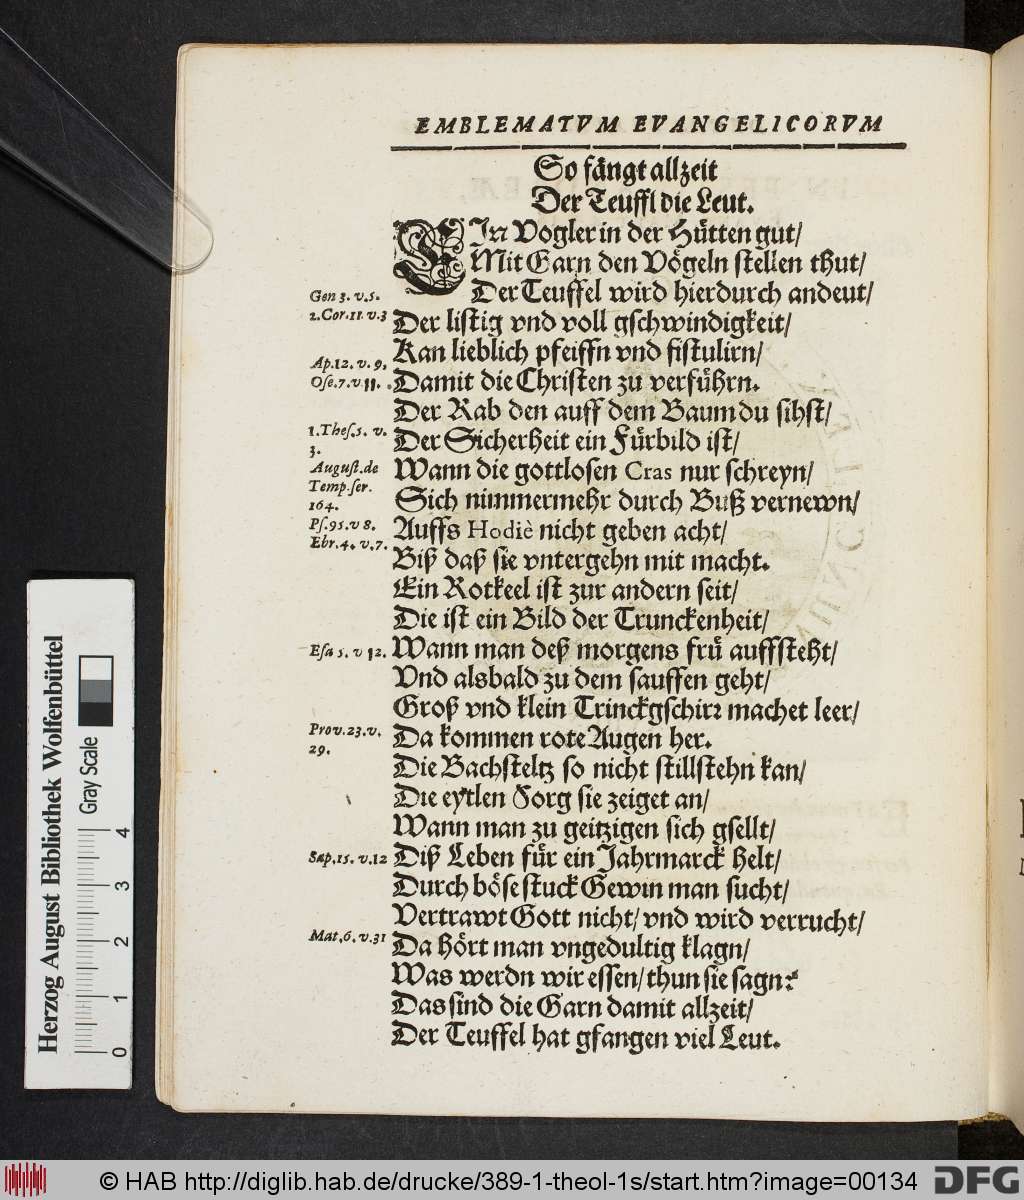 EMBLEMATVM EVANGELICORVM
So fångt allzeit
Der Teuffl die Leut.
EJn Vogler in der Hütten gut/
Mit Garn den Vögeln stellen thut/
Der Teuffel wird hierdurch andeut/
Gen 3. v. 5.
2. Cor. 11. v. 3 Der listig vnd voll gschwindigkeit/
Kan lieblich pfeiffn vnd fistulirn/
Ap. 12. v. 9.
Ose. 7. v 11. Damit die Christen zu verführn.
Der Rab den auff dem Baum du sihst/
1. Thes. 5. v. 3. Der Sicherheit ein Fürbild ist/
August. de Wann die gottlosen Cras nur schreyn/
Temp. ser. 164. Sich nimmermehr durch Buß vernewn/
Ps. 95. v 8. Auffs Hodiè nicht geben acht/
Ebr. 4. v. 7. Biß daß sie vntergehn mit macht.
Ein Rotkeel ist zur andern seit/
Die ist ein Bild der Trunckenheit/
Esa 5. v 12. Wann man deß morgens frü auffsteht/
Vnd alsbald zu dem sauffen geht/
Groß vnd klein Trinckgschirr machet leer/
Prov. 23. v. 29. Da kommen rote Augen her.
Die Bachsteltz so nicht stillstehn kan/
Die eytlen Sorg sie zeiget an/
Wann man zu geitzigen sich gsellt/
Sap. 15. v. 12 Diß Leben für ein Jahrmarck helt/
Durch böse stuck Gewin man sucht/
Vertrawt Gott nicht/ vnd wird verrucht/
Mat. 6. v. 31 Da hört man vngedultig klagn/
Was werdn wir essen/ thun sie sagn?
Das sind die Garn damit allzeit/
Der Teuffel hat gfangen viel Leut.
Herzog August Bibliothek Wolfenbüttel
Gray Scale
0 1 2 3 4
© HAB http://diglib.hab.de/drucke/389-1-theol-1s/start.htm?image=00134
DFG